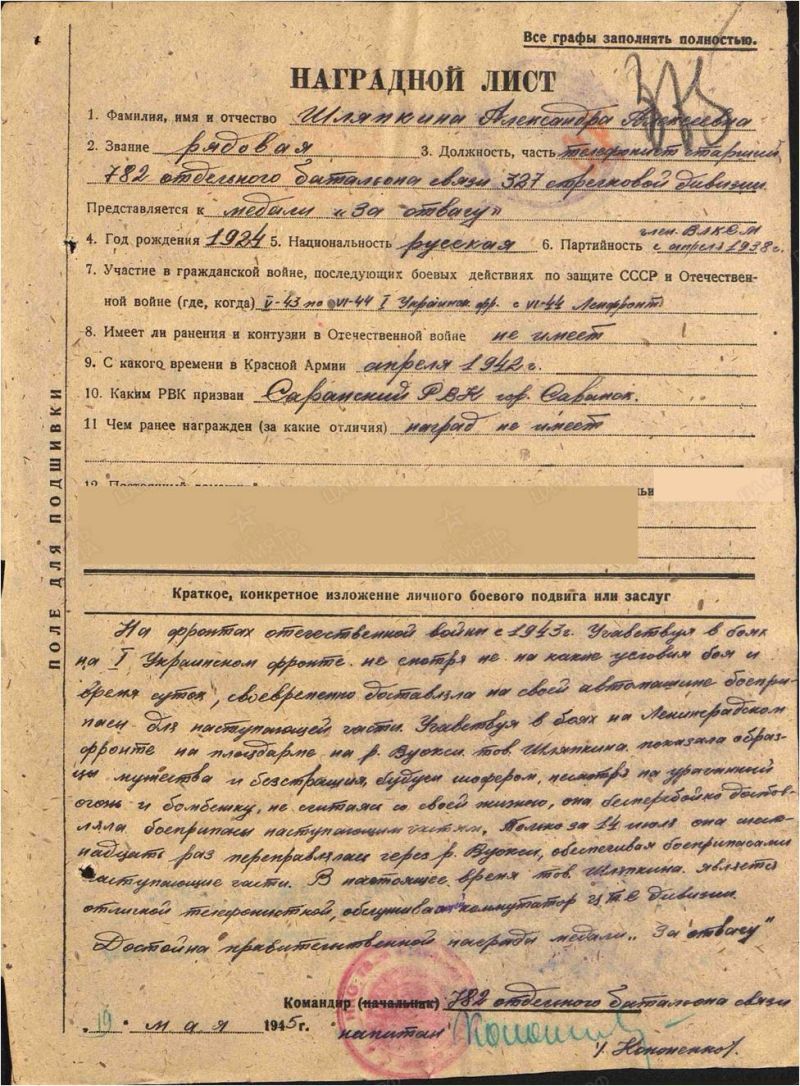 Все графы заполнять полностью.
НАГРАДНОЙ ЛИСТ
1. Фамилия, имя и отчество Шляпкина Александра Алексеевна
2. Звание рядовая 3. Должность, часть телефонист старший,
782 отдельного батальона связи 327 стрелковой дивизии.
Представляется к медали „За отвагу"
член ВЛКСМ
4. Год рождения 1924 5. Национальность русская 6. Партийность с апреля 1938 г.
7. Участие в гражданской войне, последующих боевых действиях по защите СССР и Отечествен-
ной войне (где, когда) V-43 по VI-44 I Украинск. фр. с VI-44 Ленфронт
8. Имеет ли ранения и контузии в Отечественной войне не имеет
9. С какого времени в Красной Армии апреля 1942 г.
10. Каким РВК призван Саранский РВК гор. Саранск.
11 Чем ранее награжден (за какие отличия) наград не имеет
ПОЛЕ ДЛЯ ПОДШИВКИ
Краткое, конкретное изложение личного боевого подвига или заслуг
На фронтах отечественной войны с 1943 г. Участвуя в боях
на I Украинском фронте не смотря не на какие условия боя и
время суток, своевременно доставляла на своей автомашине боепри-
пасы для наступающей части. Участвуя в боях на Ленинградском
фронте на плацдарме на р. Вуокси тов. Шляпкина показала образ-
цы мужества и безстрашия, будучи шофером, несмотря на ураганный
огонь и бомбежку, не считаяс со своей жизнью, она бесперебойно достав-
ляла боеприпасы наступающим частям. Только за 14 июля она
надцать раз переправлялась через р. Вуокси, обеспечивая боеприпасами
наступающие части. В настоящее время тов. Шляпкина является
отличной телефонисткой, обслуживая коммутатор ЦТС дивизии.
Достойна правительственной награды медали „За отвагу"
Командир (начальник) 782 отдельного батальона связи
19 мая 1945 г. капитан
/Кононенко/.